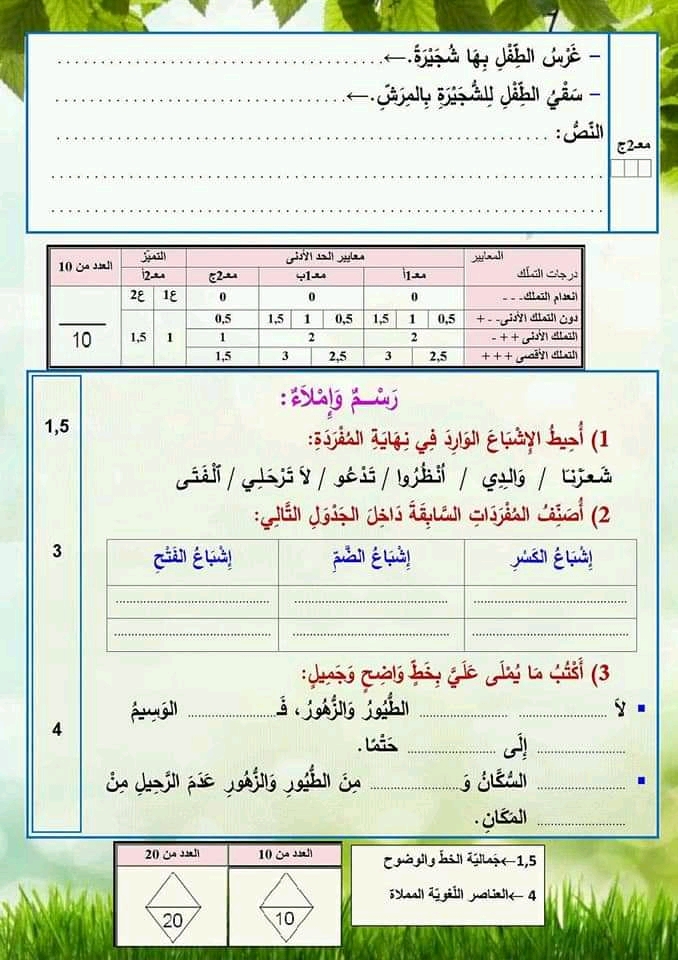 – غَرْسُ الطِّفْلِ بِهَا شُجَيْرَةً.←......................................
– سَقْيُ الطِّفْلِ لِلشُّجَيْرَةِ بِالمِرَشِّ.←......................................
النَّصُّ: ......................................
......................................
......................................
معـ2ج
المعايير
درجات التملّك
معايير الحد الأدنى
التميّز
العدد من 10
معـ1أ معـ1ب معـ2ج معـ2أ
ع1 ع2
انعدام التملك- - - 0 0 0
دون التملك الأدنى- - + 0,5 1 1,5 0,5 1 1,5 0,5
التملك الأدنى + + - 2 2 1
التملك الأقصى + + + 2,5 3 2,5 3 1,5
1 1,5
10
رَسْـمٌ وَإِمْلاَءٌ:
1,5
1) أُحِيطُ الإِشْبَاعَ الوَارِدَ فِي نِهَايَةِ المُفْرَدَةِ:
شَعَرْنَا / وَالِدِي / اُنْظُرُوا / تَدْعُو / لاَ تَرْحَلِي / اَلْفَتَى
2) أُصَنِّفُ المُفْرَدَاتِ السَّابِقَةَ دَاخِلَ الجَدْوَلِ التَّالِي:
3
إِشْبَاعُ الكَسْرِ إِشْبَاعُ الضَّمِّ إِشْبَاعُ الفَتْحِ
...................... ...................... ......................
...................... ...................... ......................
3) أَكْتُبُ مَا يُمْلَى عَلَيَّ بِخَطٍّ وَاضِحٍ وَجَمِيلٍ:
4
▪ لاَ .................. .................. الطُّيُورُ وَالزُّهُورُ، فَـ.................. الوَسِيمُ
.................. إِلَى .................. حَتْمًا.
▪ .................. السُّكَّانُ وَ.................. مِنَ الطُّيُورِ وَالزُّهُورِ عَدَمَ الرَّحِيلِ مِنْ
.................. المَكَانِ.
1,5←جَماليّة الخطّ والوضوح
4 ←العناصر اللّغويّة المملاة
العدد من 10 العدد من 20
10 20